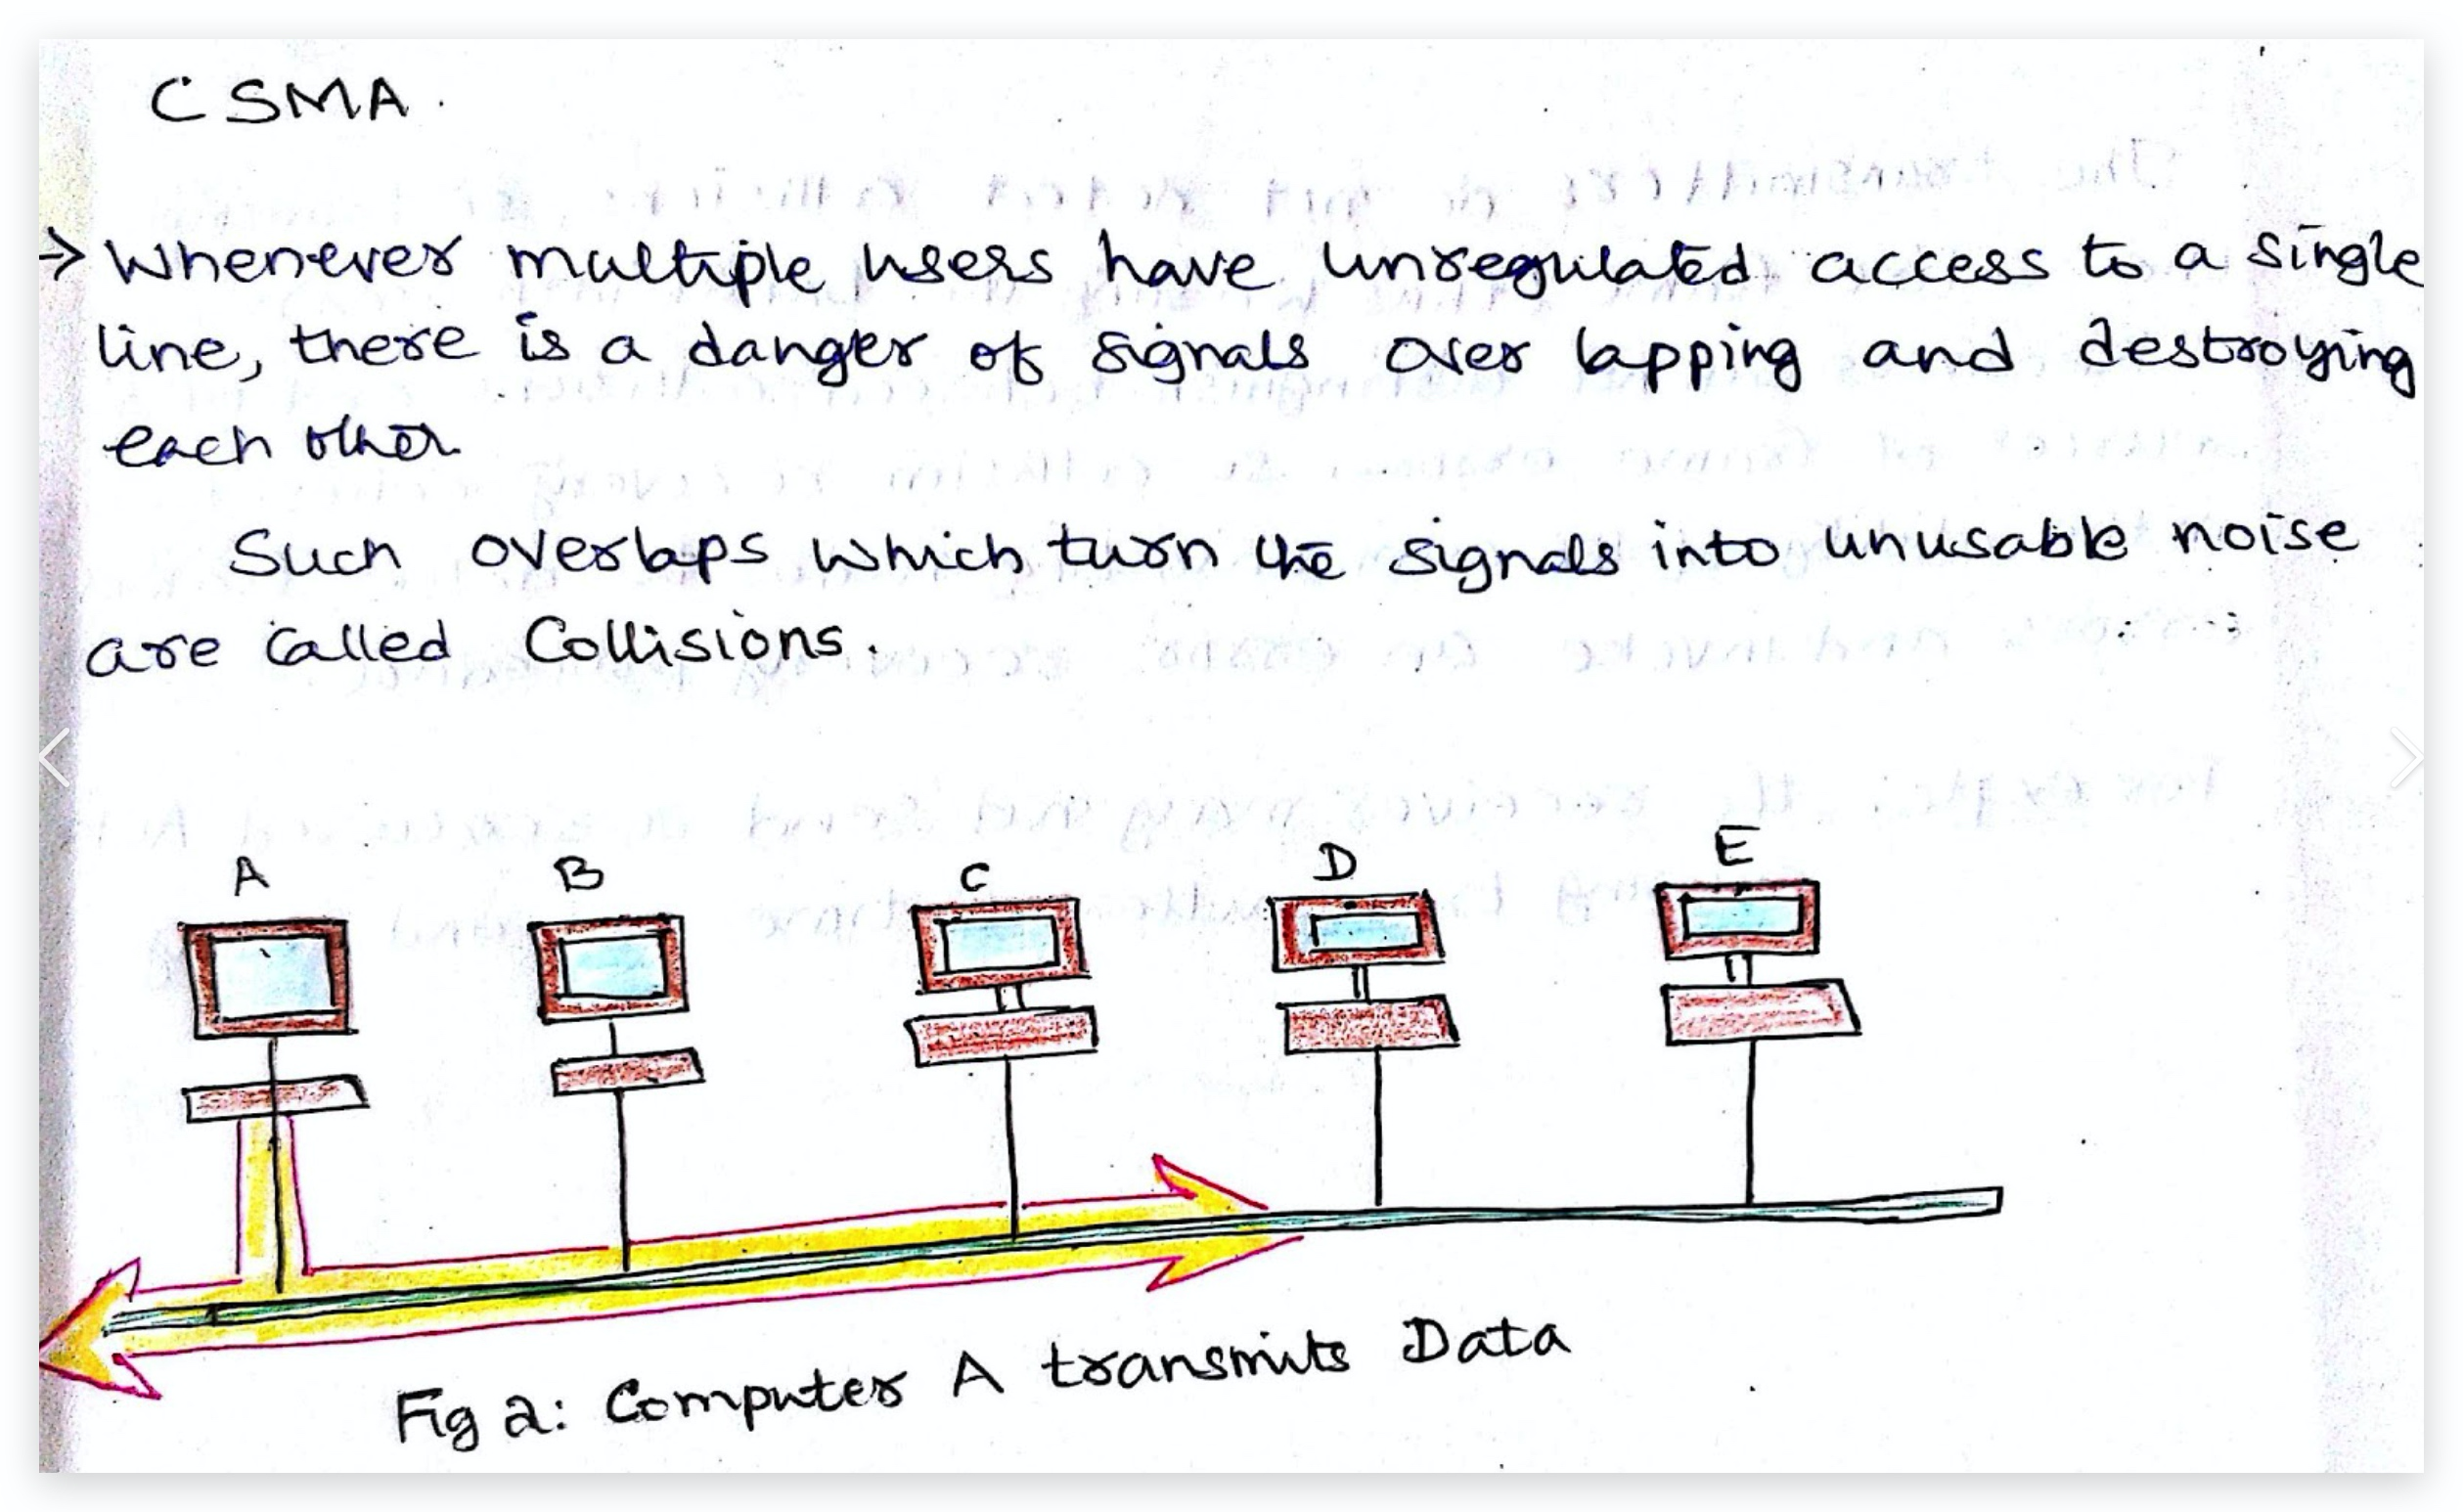 CSMA.
→ Whenever multiple users have unregulated access to a single
line, there is a danger of signals over lapping and destroying
each other
Such overlaps which turn the signals into unusable noise
are called Collisions.
A B C D E
Fig 2: Computer A transmits Data